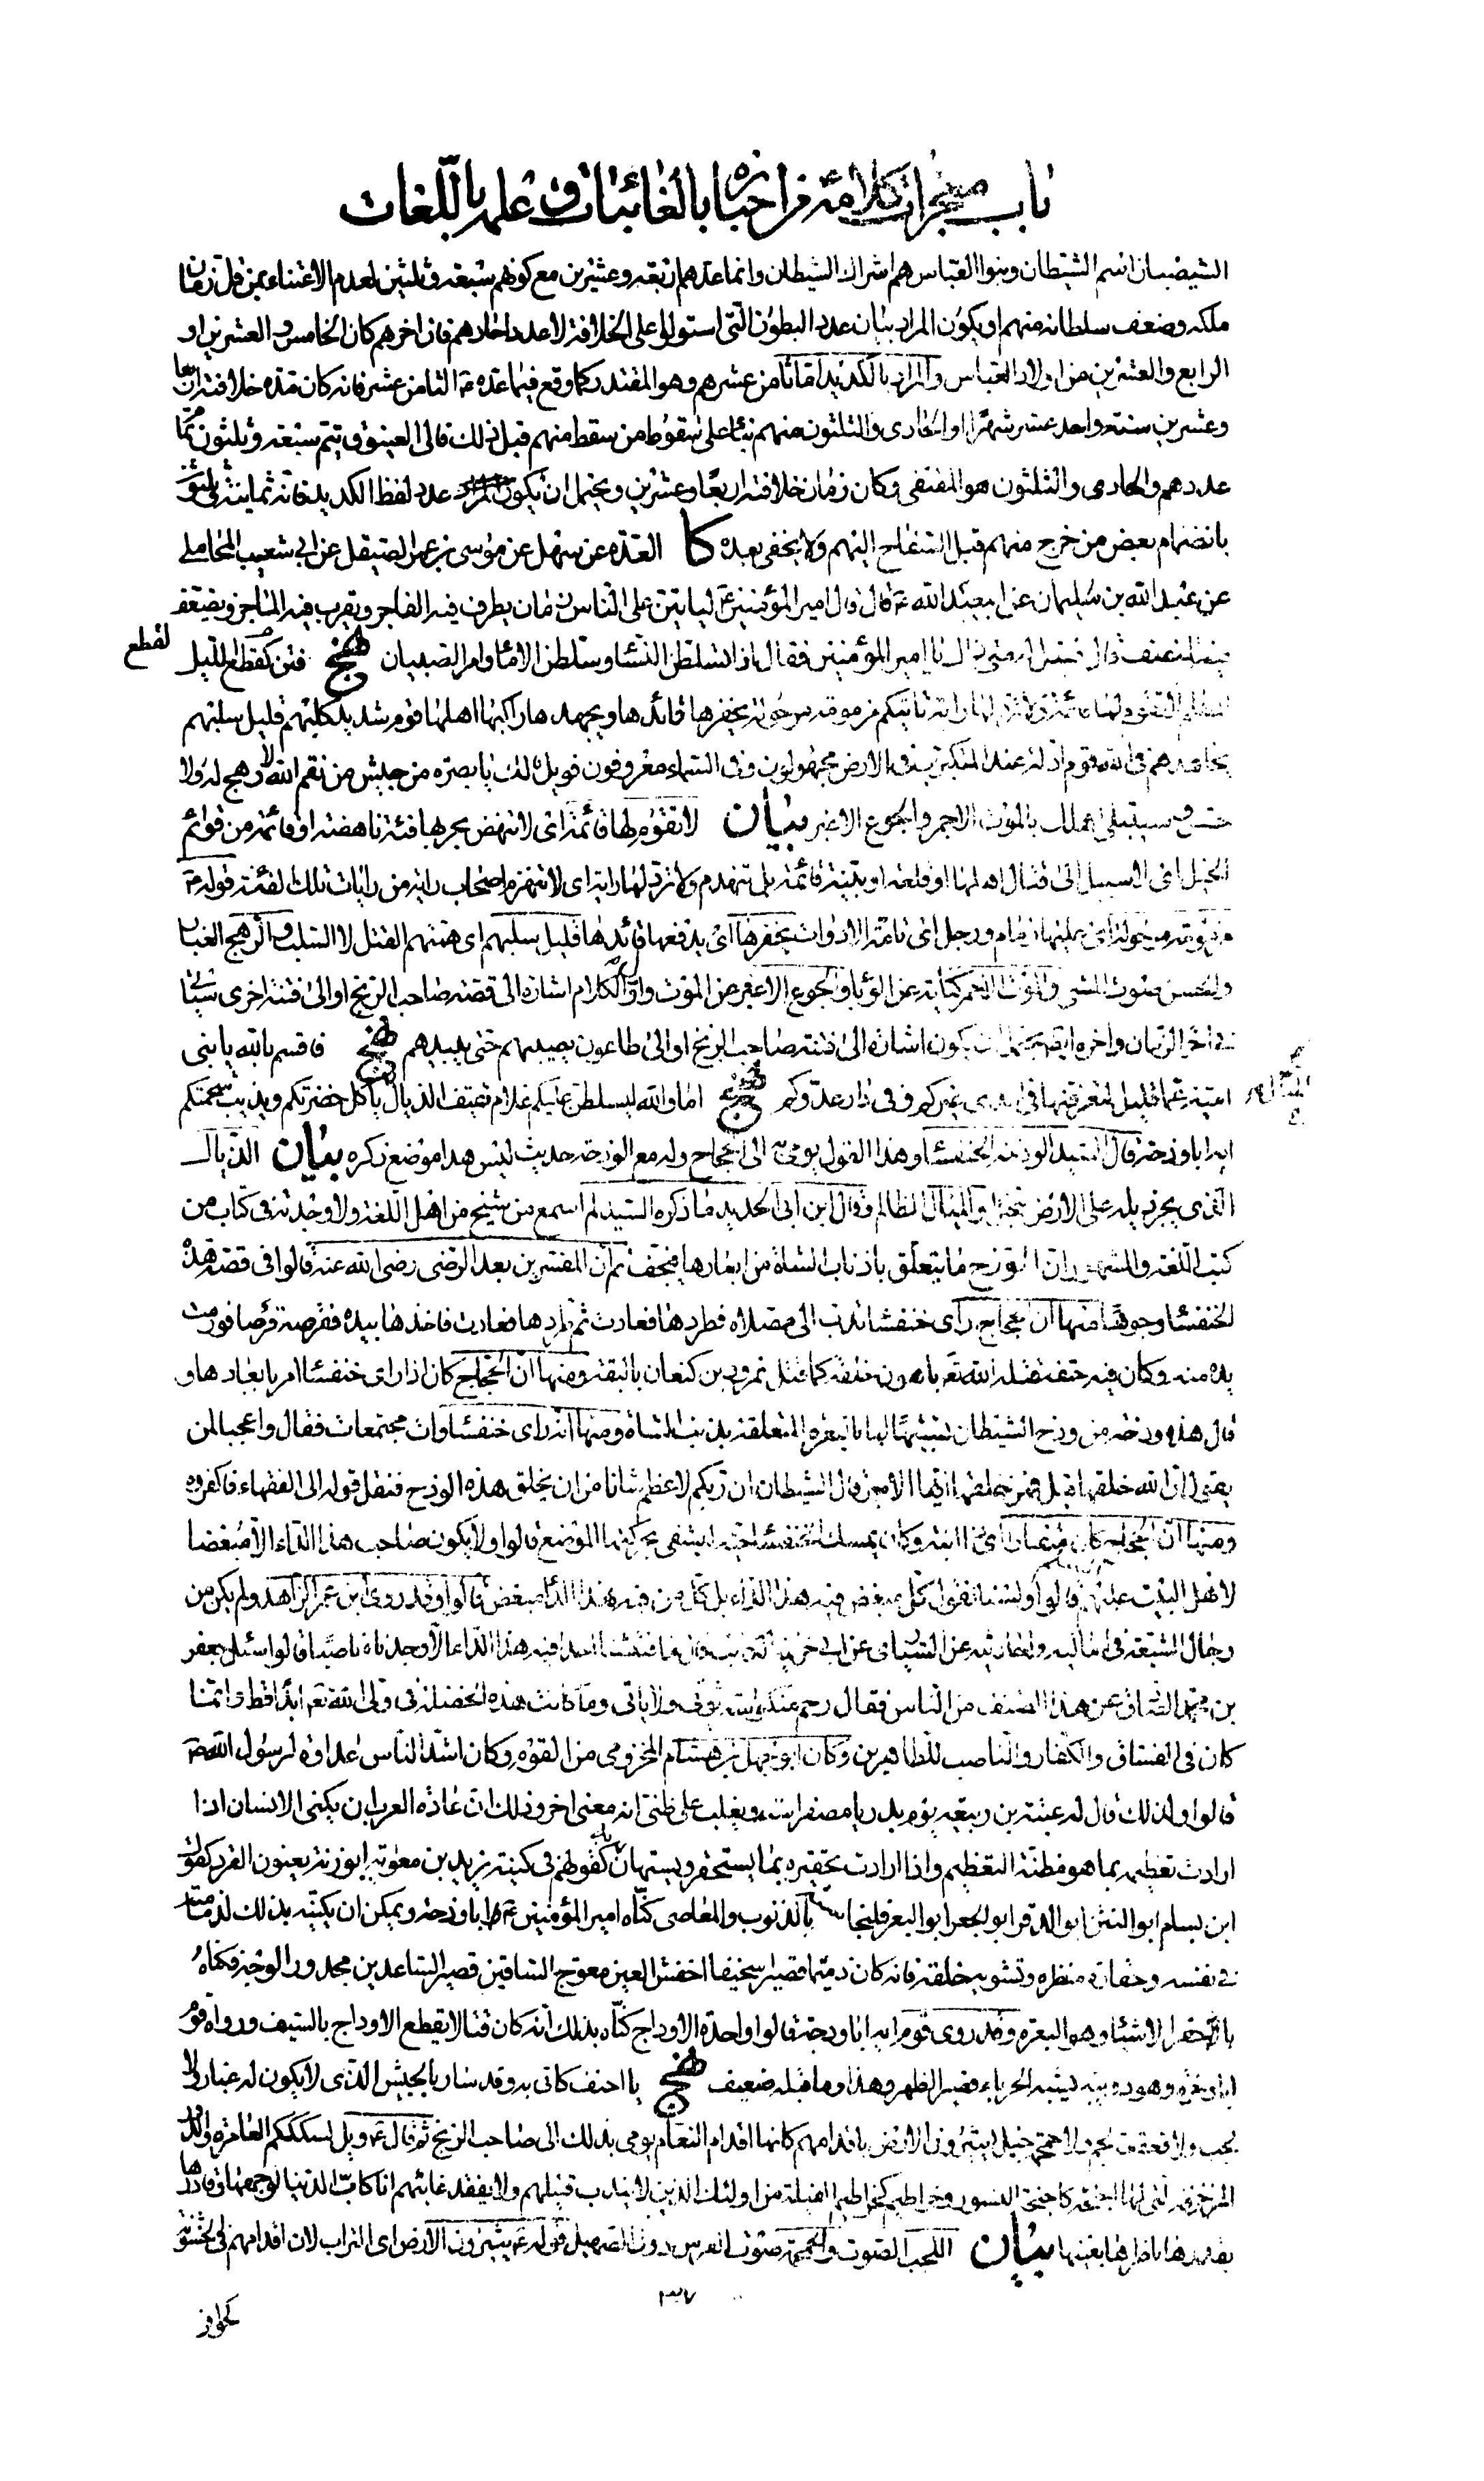 باب معجزات كلامه من اخباره بالغائبات و علمه باللغات
الشيصبان اسم الشيطان وبنوا العباس هم اشراك الشيطان وانما عدهم اربعة وعشرين مع كونهم سبعة وثلثين لعدم الاعتناء بمن قل زمان
ملكه وضعف سلطانه منهم او يكون المراد بيان عدد البطون التى استولوا على الخلافة لا عدد احادهم فان اخرهم كان الخامس والعشرين او
الرابع والعشرين من اولاد العباس والمراد بالكديد اما ثامن عشرهم وهو المقتدر كما وقع فيما عده ع الثامن عشر فانه كان مدة خلافته اربعا
وعشرين سنة واحد عشر شهرا او الحادى والثلثون منهم بناء على سقوط من سقط منهم قبل ذلك قال العينوق يتم سبعة وثلثون مما
عددهم والحادى والثلثون هو المقتفى وكان زمان خلافته اربعا وعشرين ويحتمل ان يكون المراد عدد لفظ الكديد فانه ثمانية وثلثون
بانضمام بعض من خرج منهم قبل السفاح اليهم ولا يخفى بعده كا العدة عن سهل عن موسى بن عمر الصيقل عن ابى شعيب المحاملى
عن عبد الله بن سليمان عن ابيعبد الله ع قال قال امير المؤمنين ع لياتين على الناس زمان يطرف فيه الفاجر ويقرب فيه الماجن ويضعف
فيه المنصف قال فقيل له متى ذاك يا امير المؤمنين فقال اذا تسلطن النساء وسلطن الاماء وامر الصبيان نهج فتن كقطع الليل
لقطع
المظلم لا تقوم لها قائمة ولا ترد لها راية تاتيكم مزمومة مرحولة يحفزها قائدها ويجهدها راكبها اهلها قوم شديد كلبهم قليل سلبهم
يجاهدهم فى الله قوم اذلة عند المتكبرين فى الارض مجهولون وفى السماء معروفون فويل لك يا بصره من جيش من نقم الله لا رهج له ولا
حس وسيبتلى اهلك بالموت الاحمر والجوع الاغبر بيان لا تقوم لها قائمة اى لا تنهض بحربها فئة ناهضة او قائمة من قوائم
الخيل اى لا سبيل الى قتال اهلها او قلعة او بنية قائمة بل تنهدم ولا ترد لها راية اى لا تنهزم اصحاب راية من رايات تلك الفئة قوله ع
مزمومة مرحولة اى عليها زمام ورحل اى تامة الادوات يحفزها اى يدفعها قائدها قليل سلبهم اى همتهم القتل لا السلب والرهج الغبار
والحس صوت المشى والموت الاحمر كناية عن الوباء والجوع الاغبر عن الموت واول الكلام اشارة الى قصة صاحب الزنج او الى فتنة اخرى سياتى
فى اخر الزمان واخره ايضا يحتمل ان يكون اشارة الى فتنة صاحب الزنج او الى طاعون يصيبهم حتى يبيدهم نهج فاقسم بالله يا بنى
امية عما قليل لتعرفنها فى ايدى غيركم وفى دار عدوكم نهج اما والله ليسلطن عليكم غلام ثقيف الذيال ياكل خضرتكم ويذيب شحمتكم
ايه ابا وذحة قال السيد الوذحة الخنفساء وهذا القول يومى به الى الحجاج وله مع الوذحة حديث ليس هذا موضع ذكره بيان الذيال
الذى يجر ذيله على الارض تبخترا والميال الظالم وقال ابن ابى الحديد ما ذكره السيد لم اسمع من شيخ من اهل اللغة ولا وجدته فى كتاب من
كتب اللغة والمشهور ان الوذح ما يتعلق باذناب الشاة من ابعارها فيجف ثم ان المفسرين بعد الرضى رضى الله عنه قالوا فى قصة هذه
الخنفساء وجوها منها ان الحجاج راى خنفساء تدب الى مصلاه فطردها فعادت ثم طردها فعادت فاخذها بيده فقرصته قرصا فورمت
يده منه وكان فيه حتفه قتله الله تع باهون خلقه كما قتل نمرود بن كنعان بالبقة ومنها ان الحجاج كان اذا راى خنفساء امر بابعادها و
قال هذه وذحة من وذح الشيطان تشبيها لها بالبعرة المتعلقة بذنب الشاة ومنها انه راى خنفساوات مجتمعات فقال واعجبا لمن
يقول ان الله خلقها قيل فمن خلقها ايها الامير قال الشيطان ان ربكم لاعظم شانا من ان يخلق هذه الوذح فنقل قوله الى الفقهاء فاكفروه
ومنها ان الحجاج كان مثفارا اى ذا ابنة وكان يمسك الخنفساء حية ليشفى بحركتها الموضع قالوا ولا يكون صاحب هذا الداء الا مبغضا
لاهل البيت عليهم قالوا ولسنا نقول كل مبغض فيه هذا الداء بل كل من فيه هذا الداء مبغض قالوا وقد روى ابن عمر الزاهد ولم يكن من
رجال الشيعة فى اماليه واحاديثه عن السيارى عن ابى خزيمة الكاتب قال ما فتشنا احدا فيه هذا الداء الا وجدناه ناصبيا قالوا سئل جعفر
بن محمد الصادق عن هذا الصنف من الناس فقال رحم منكوسة يؤتى ولا ياتى وما كانت هذه الخصلة فى ولى الله تع ابدا قط وانما
كان فى الفساق والكفار والناصب للطاهرين وكان ابو جهل بن هشام المخزومى من القوم وكان اشد الناس عداوة لرسول الله ص
قالوا ولذلك قال له عتبة بن ربيعة يوم بدر يا مصفر استه ويغلب على ظنى انه معنى اخر وذلك ان عادة العرب ان يكنى الانسان اذا
ارادت تعظيمه بما هو مظنة التعظيم واذا ارادت تحقيره بما يستحقر ويستهان به كقولهم فى كنية يزيد بن معوية ابو زنة يعنون القرد كقول
ابن بسام ابو النتن ابو الدفر ابو الجعر ابو البعر فلنجاسته بالذنوب والمعاصى كناه امير المؤمنين ع ابا وذحة ويمكن ان يكنيه بذلك لدمامته
فى نفسه وحقارة منظره وتشويه خلقته فانه كان دميما قصيرا سخيفا اخفش العين معوج الساقين قصير الساعدين مجدور الوجه فكناه
باحقر الاشياء وهو البعرة وقد روى قوم ايه ابا ودجة قالوا واحدة الاوداج كناه بذلك انه كان قتالا يقطع الاوداج بالسيف ورواه قوم
ابا وحرة وهو دويبة يشبه الحرباء قصير الظهر وهذا وما قبله ضعيف نهج يا احنف كانى به وقد سار بالجيش الذى لا يكون له غبار ولا
لجب ولا قعقعة لجم ولا حمحمة خيل يثيرون الارض باقدامهم كانها اقدام النعام يومى بذلك الى صاحب الزنج ثم قال ع ويل لسكككم العامرة والدور
المزخرفة التى لها اجنحة كاجنحة النسور وخراطيم كخراطيم الفيلة من اولئك الذين لا يندب قتيلهم ولا يفقد غائبهم انا كاب الدنيا لوجهها وقادرها
بقدرها وناظرها بعينها بيان اللجب الصوت والحمحمة صوت الفرس دون الصهيل قوله ع يثيرون الارض اى التراب لان اقدامهم فى الخشونة
٣٧
كحوافر